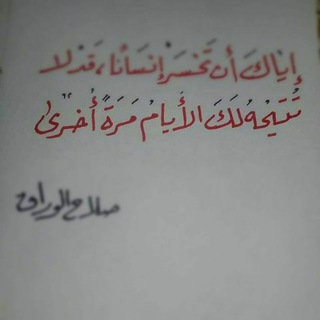 إياكَ أن تَخسَرَ إنسَانًا، قَدْ لا
تُتيحُهُ لَكَ الأيامُ مَرَةً أُخرىٰ
صلاح الوراق